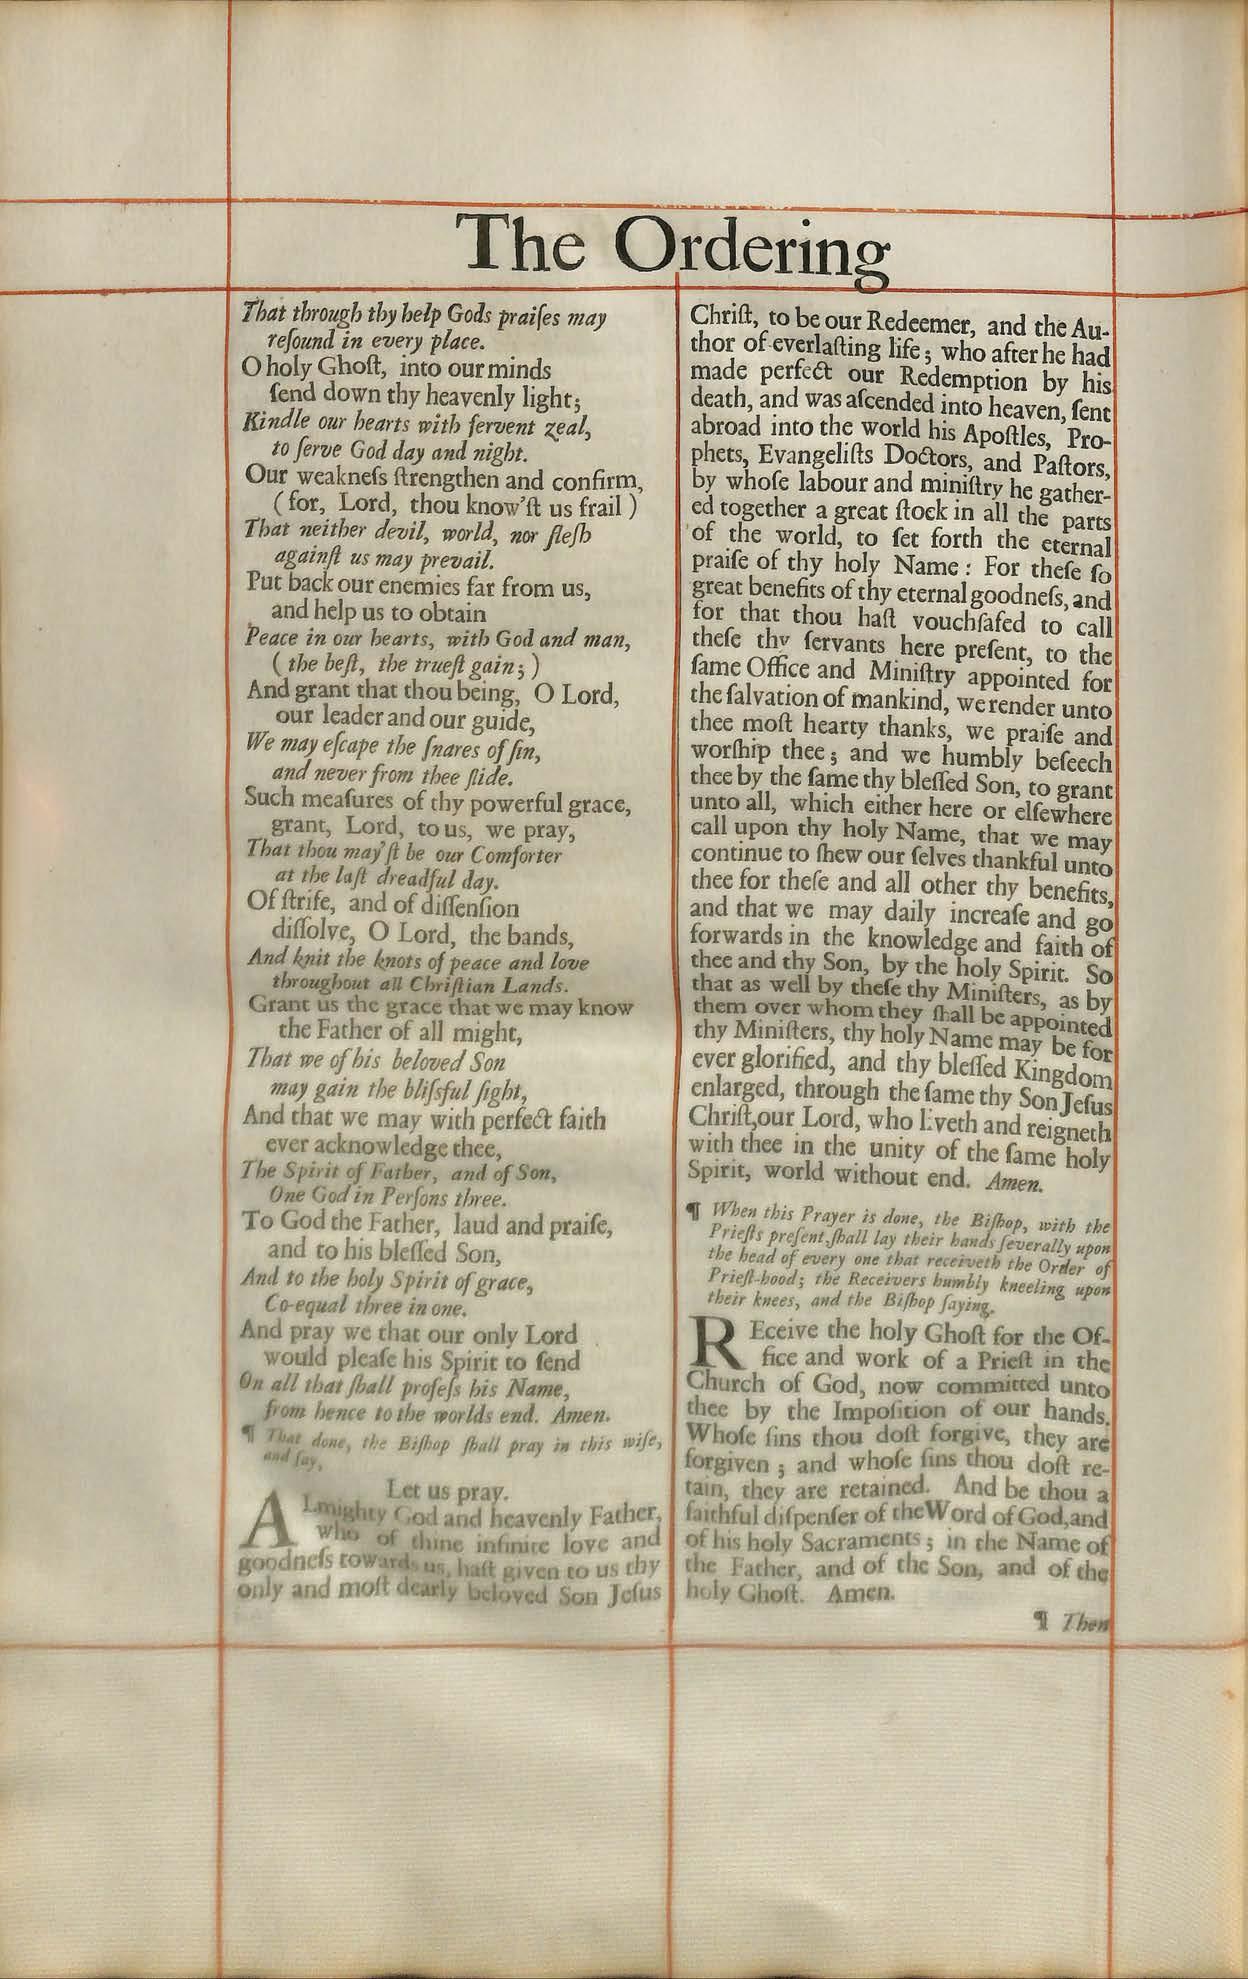 The Ordering
That through thy help Gods praiſes may
reſound in every place.
O holy Ghoſt, into our minds
ſend down thy heavenly light;
Kindle our hearts with fervent zeal,
to ſerve God day and night.
Our weakneſs ſtrengthen and confirm,
(for, Lord, thou know'ſt us frail)
That neither devil, world, nor fleſh
againſt us may prevail.
Put back our enemies far from us,
and help us to obtain
Peace in our hearts, with God and man,
(the beſt, the trueſt gain;)
And grant that thou being, O Lord,
our leader and our guide,
We may eſcape the ſnares of ſin,
and never from thee ſlide.
Such meaſures of thy powerful grace,
grant, Lord, to us, we pray,
That thou may'ſt be our Comforter
at the laſt dreadful day.
Of ſtrife, and of diſſenſion
diſſolve, O Lord, the bands,
And knit the knots of peace and love
throughout all Chriſtian Lands.
Grant us the grace that we may know
the Father of all might,
That we of his beloved Son
may gain the bliſsful ſight,
And that we may with perfect faith
ever acknowledge thee,
The Spirit of Father, and of Son,
One God in Perſons three.
To God the Father, laud and praiſe,
and to his bleſſed Son,
And to the holy Spirit of grace,
Co-equal three in one.
And pray we that our only Lord
would pleaſe his Spirit to ſend
On all that ſhall profeſs his Name,
from hence to the worlds end. Amen.
¶ That done, the Biſhop ſhall pray in this wiſe,
and ſay,
Let us pray.
ALmighty God and heavenly Father,
who of thine infinite love and
goodneſs towards us, haſt given to us thy
only and moſt dearly beloved Son Jeſus
Chriſt, to be our Redeemer, and the Au-
thor of everlaſting life; who after he had
made perfect our Redemption by his
death, and was aſcended into heaven, ſent
abroad into the world his Apoſtles, Pro-
phets, Evangeliſts Doctors, and Paſtors,
by whoſe labour and miniſtry he gather-
ed together a great flock in all the parts
of the world, to ſet forth the eternal
praiſe of thy holy Name: For theſe ſo
great benefits of thy eternal goodneſs, and
for that thou haſt vouchſafed to call
theſe thy ſervants here preſent, to the
ſame Office and Miniſtry appointed for
the ſalvation of mankind, we render unto
thee moſt hearty thanks, we praiſe and
worſhip thee; and we humbly beſeech
thee by the ſame thy bleſſed Son, to grant
unto all, which either here or elſewhere
call upon thy holy Name, that we may
continue to ſhew our ſelves thankful unto
thee for theſe and all other thy benefits,
and that we may daily increaſe and go
forwards in the knowledge and faith of
thee and thy Son, by the holy Spirit. So
that as well by theſe thy Miniſters, as by
them over whom they ſhall be appointed
thy Miniſters, thy holy Name may be for
ever glorified, and thy bleſſed Kingdom
enlarged, through the ſame thy Son Jeſus
Chriſt, our Lord, who liveth and reigneth
with thee in the unity of the ſame holy
Spirit, world without end. Amen.
¶ When this Prayer is done, the Biſhop, with the
Prieſts preſent, ſhall lay their hands ſeverally upon
the head of every one that receiveth the Order of
Prieſt-hood; the Receivers humbly kneeling upon
their knees, and the Biſhop ſaying,
REceive the holy Ghoſt for the Of-
fice and work of a Prieſt in the
Church of God, now committed unto
thee by the Impoſition of our hands.
Whoſe ſins thou doſt forgive, they are
forgiven; and whoſe ſins thou doſt re-
tain, they are retained. And be thou a
faithful diſpenſer of the Word of God, and
of his holy Sacraments; in the Name of
the Father, and of the Son, and of the
holy Ghoſt. Amen.
¶ Then